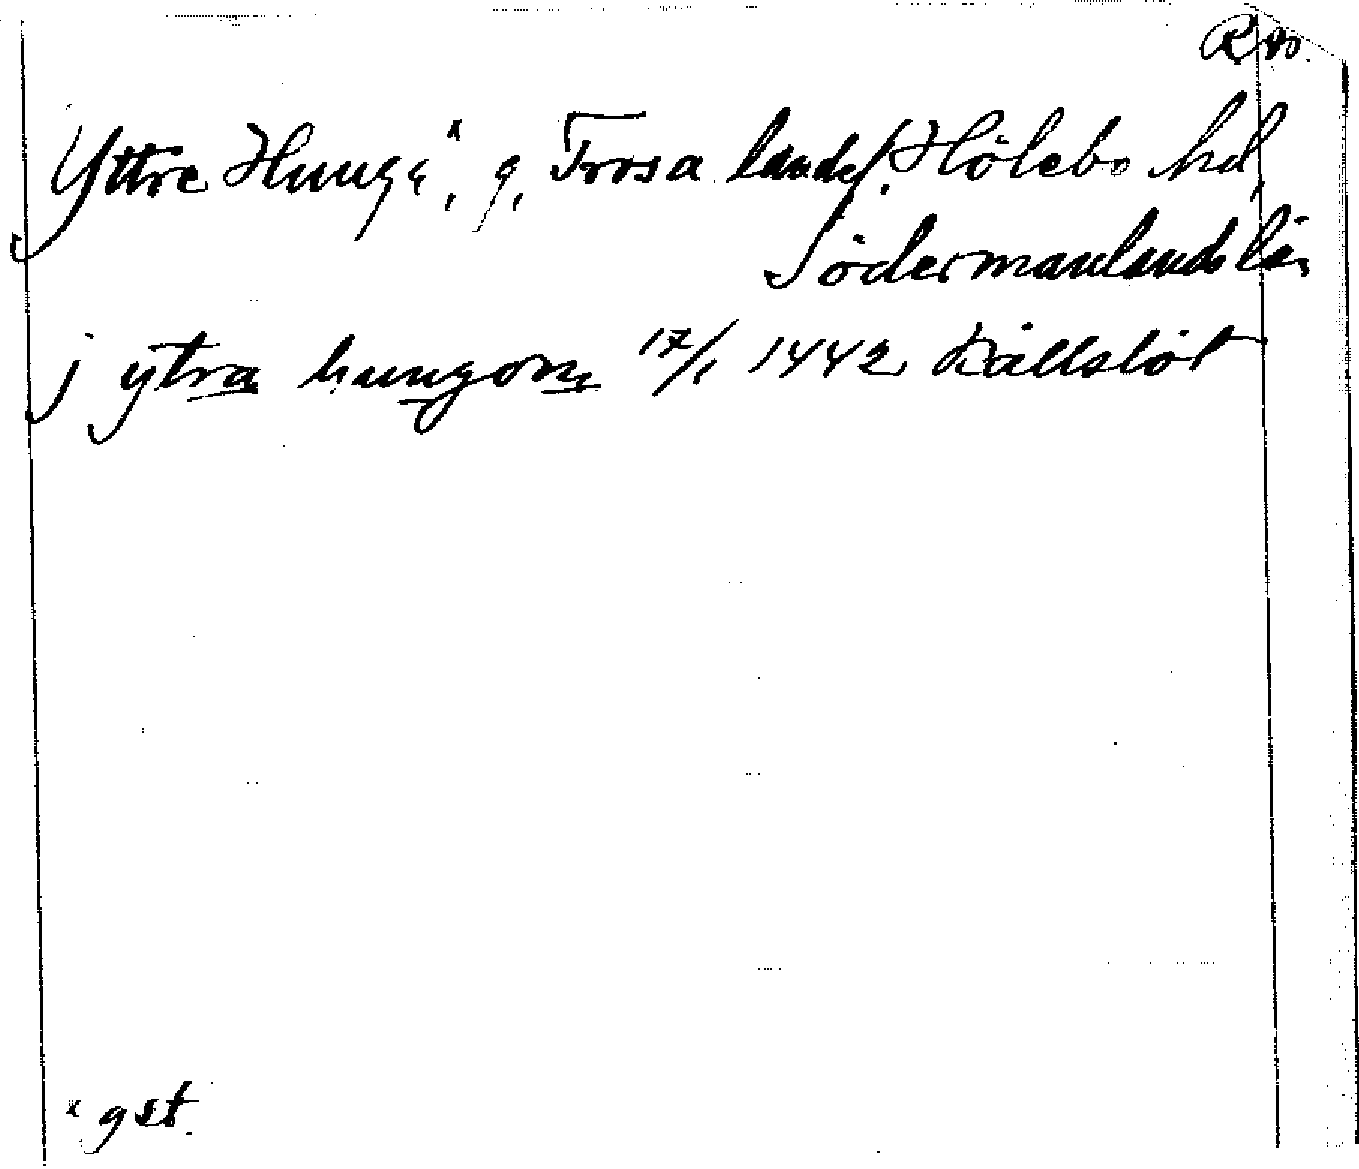 Yttre Hunga,ˣ g, Trosa landsf. Hölebo hd,
Södermanlands län
j ytra hungom 17/1 1442 Källslöt
ˣ gst.